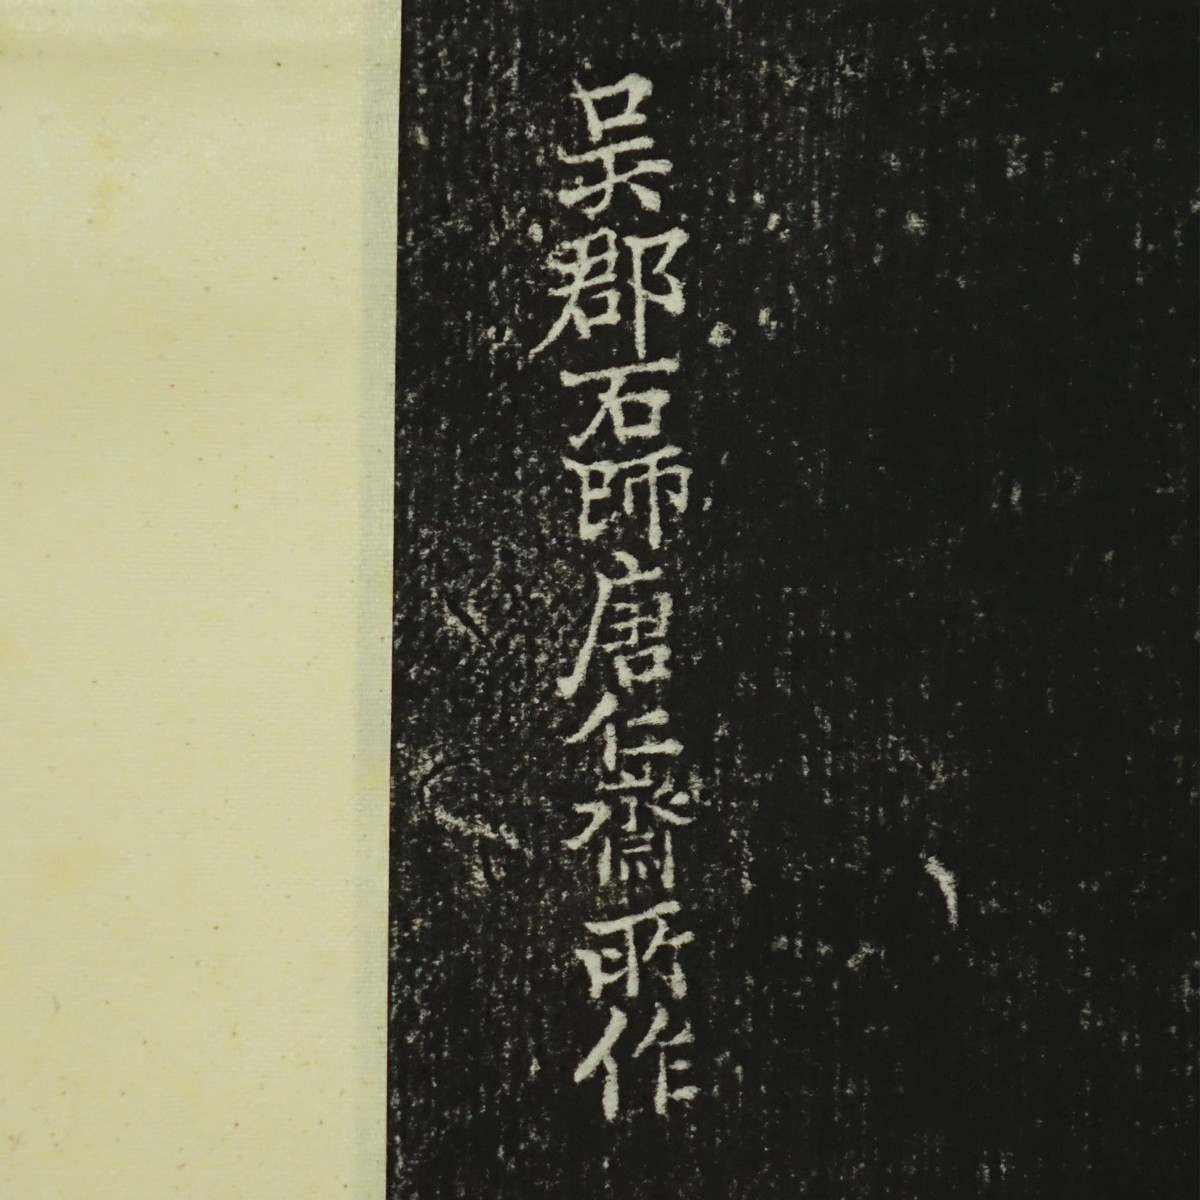 吴郡石師唐仁齋所作